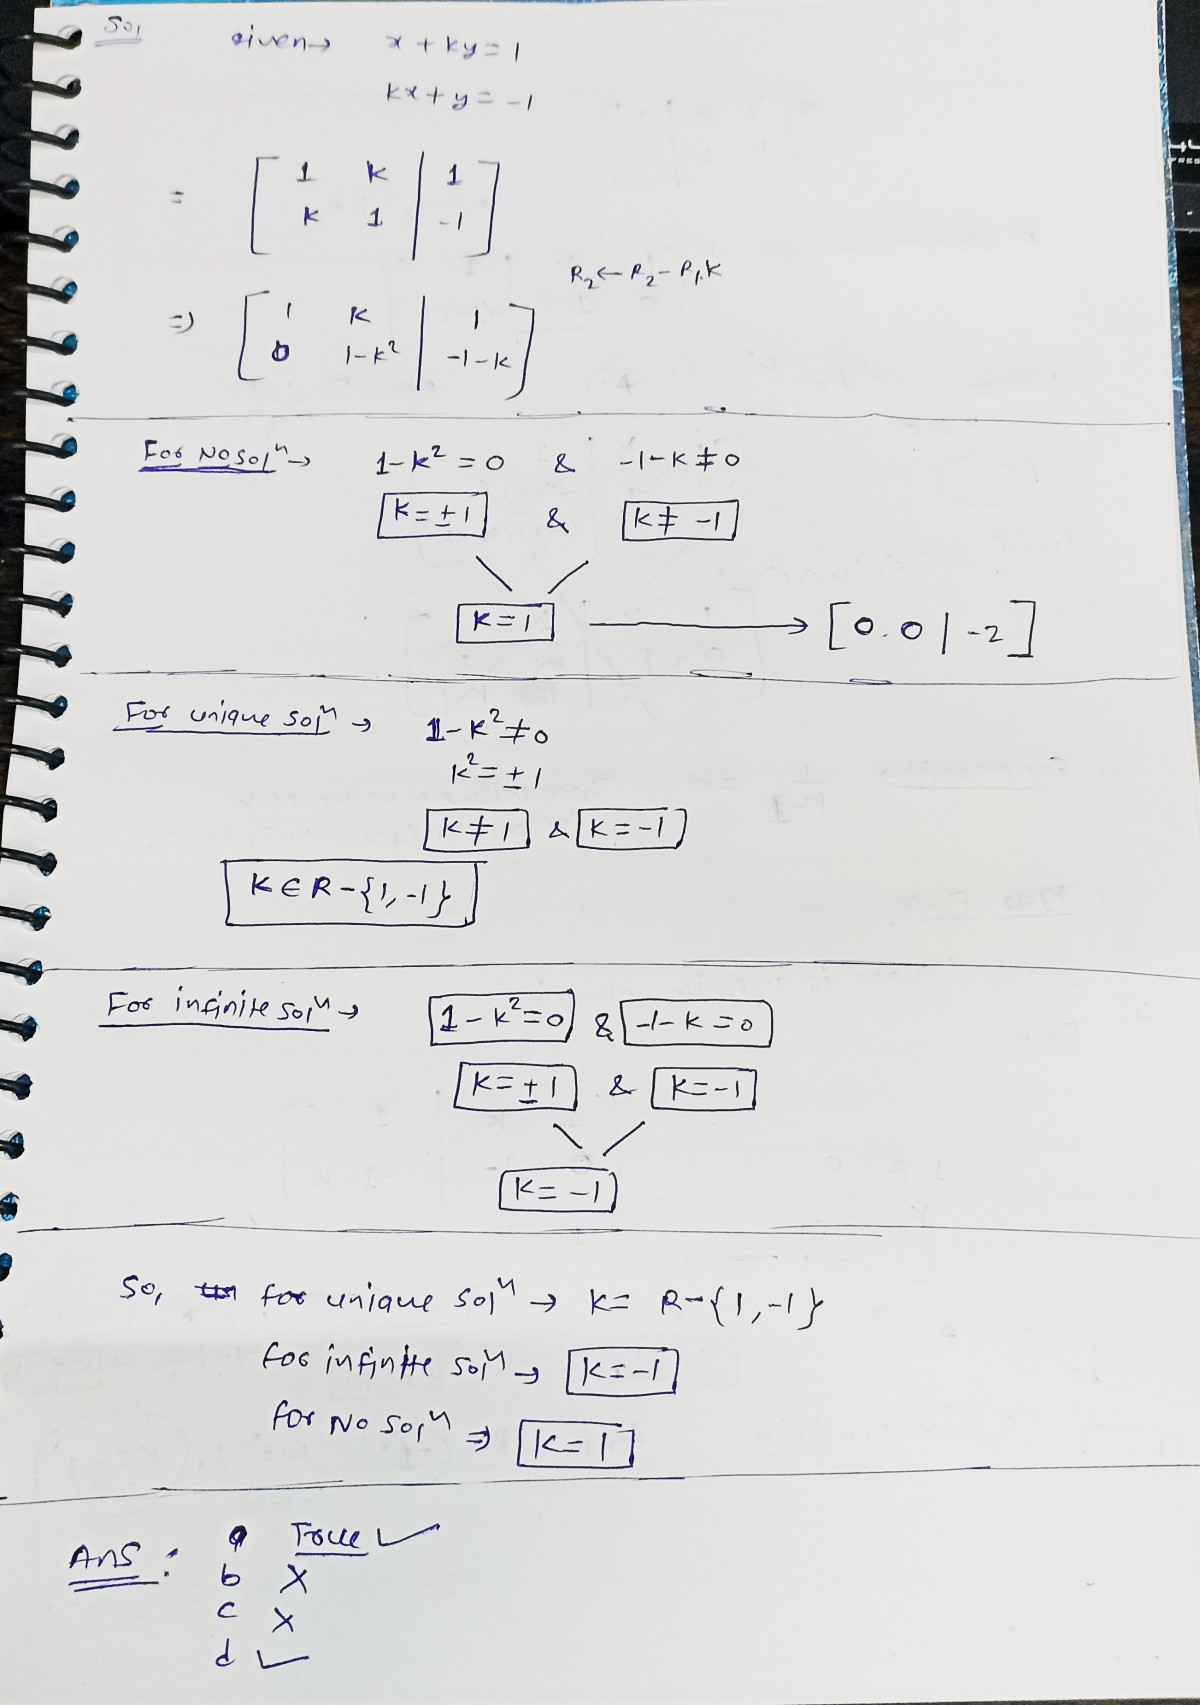 Sol
Given → x + ky = 1
kx + y = -1
= [ 1 k | 1
k 1 | -1 ]
R₂ ← R₂ - R₁.k
⇒ [ 1 k | 1
0 1-k² | -1-k ]
For No solⁿ → 1-k² = 0 & -1-k ≠ 0
k = ±1 & k ≠ -1
k = 1 → [0.0 | -2]
For unique solⁿ → 1-k² ≠ 0
k² = ±1
k ≠ 1 & k = -1
k ∈ R - {1, -1}
For infinite solⁿ → 1-k² = 0 & -1-k = 0
k = ±1 & k = -1
k = -1
So, for unique solⁿ → k = R - {1, -1}
for infinite solⁿ → k = -1
for No solⁿ ⇒ k = 1
Ans : a True ✓
b X
c X
d ✓